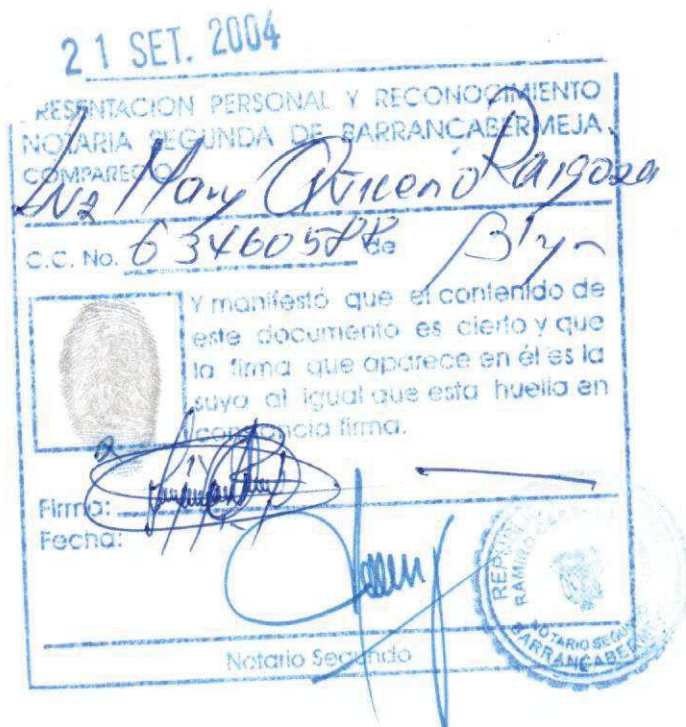 21 SET. 2004
RESENTACION PERSONAL Y RECONOCIMIENTO
NOTARIA SEGUNDA DE BARRANCABERMEJA.
COMPARECIO
Luz Mary Quiceno Raigoza
C.C. No. 63460588 de B/ya
Y manifestó que el contenido de
este documento es cierto y que
la firma que aparece en él es la
suya al igual que esta huella en
constancia firma.
Firma:
Fecha:
Notario Segundo
REPUBL
RAMIRO
NOTARIO SEGU
BARRANCABER